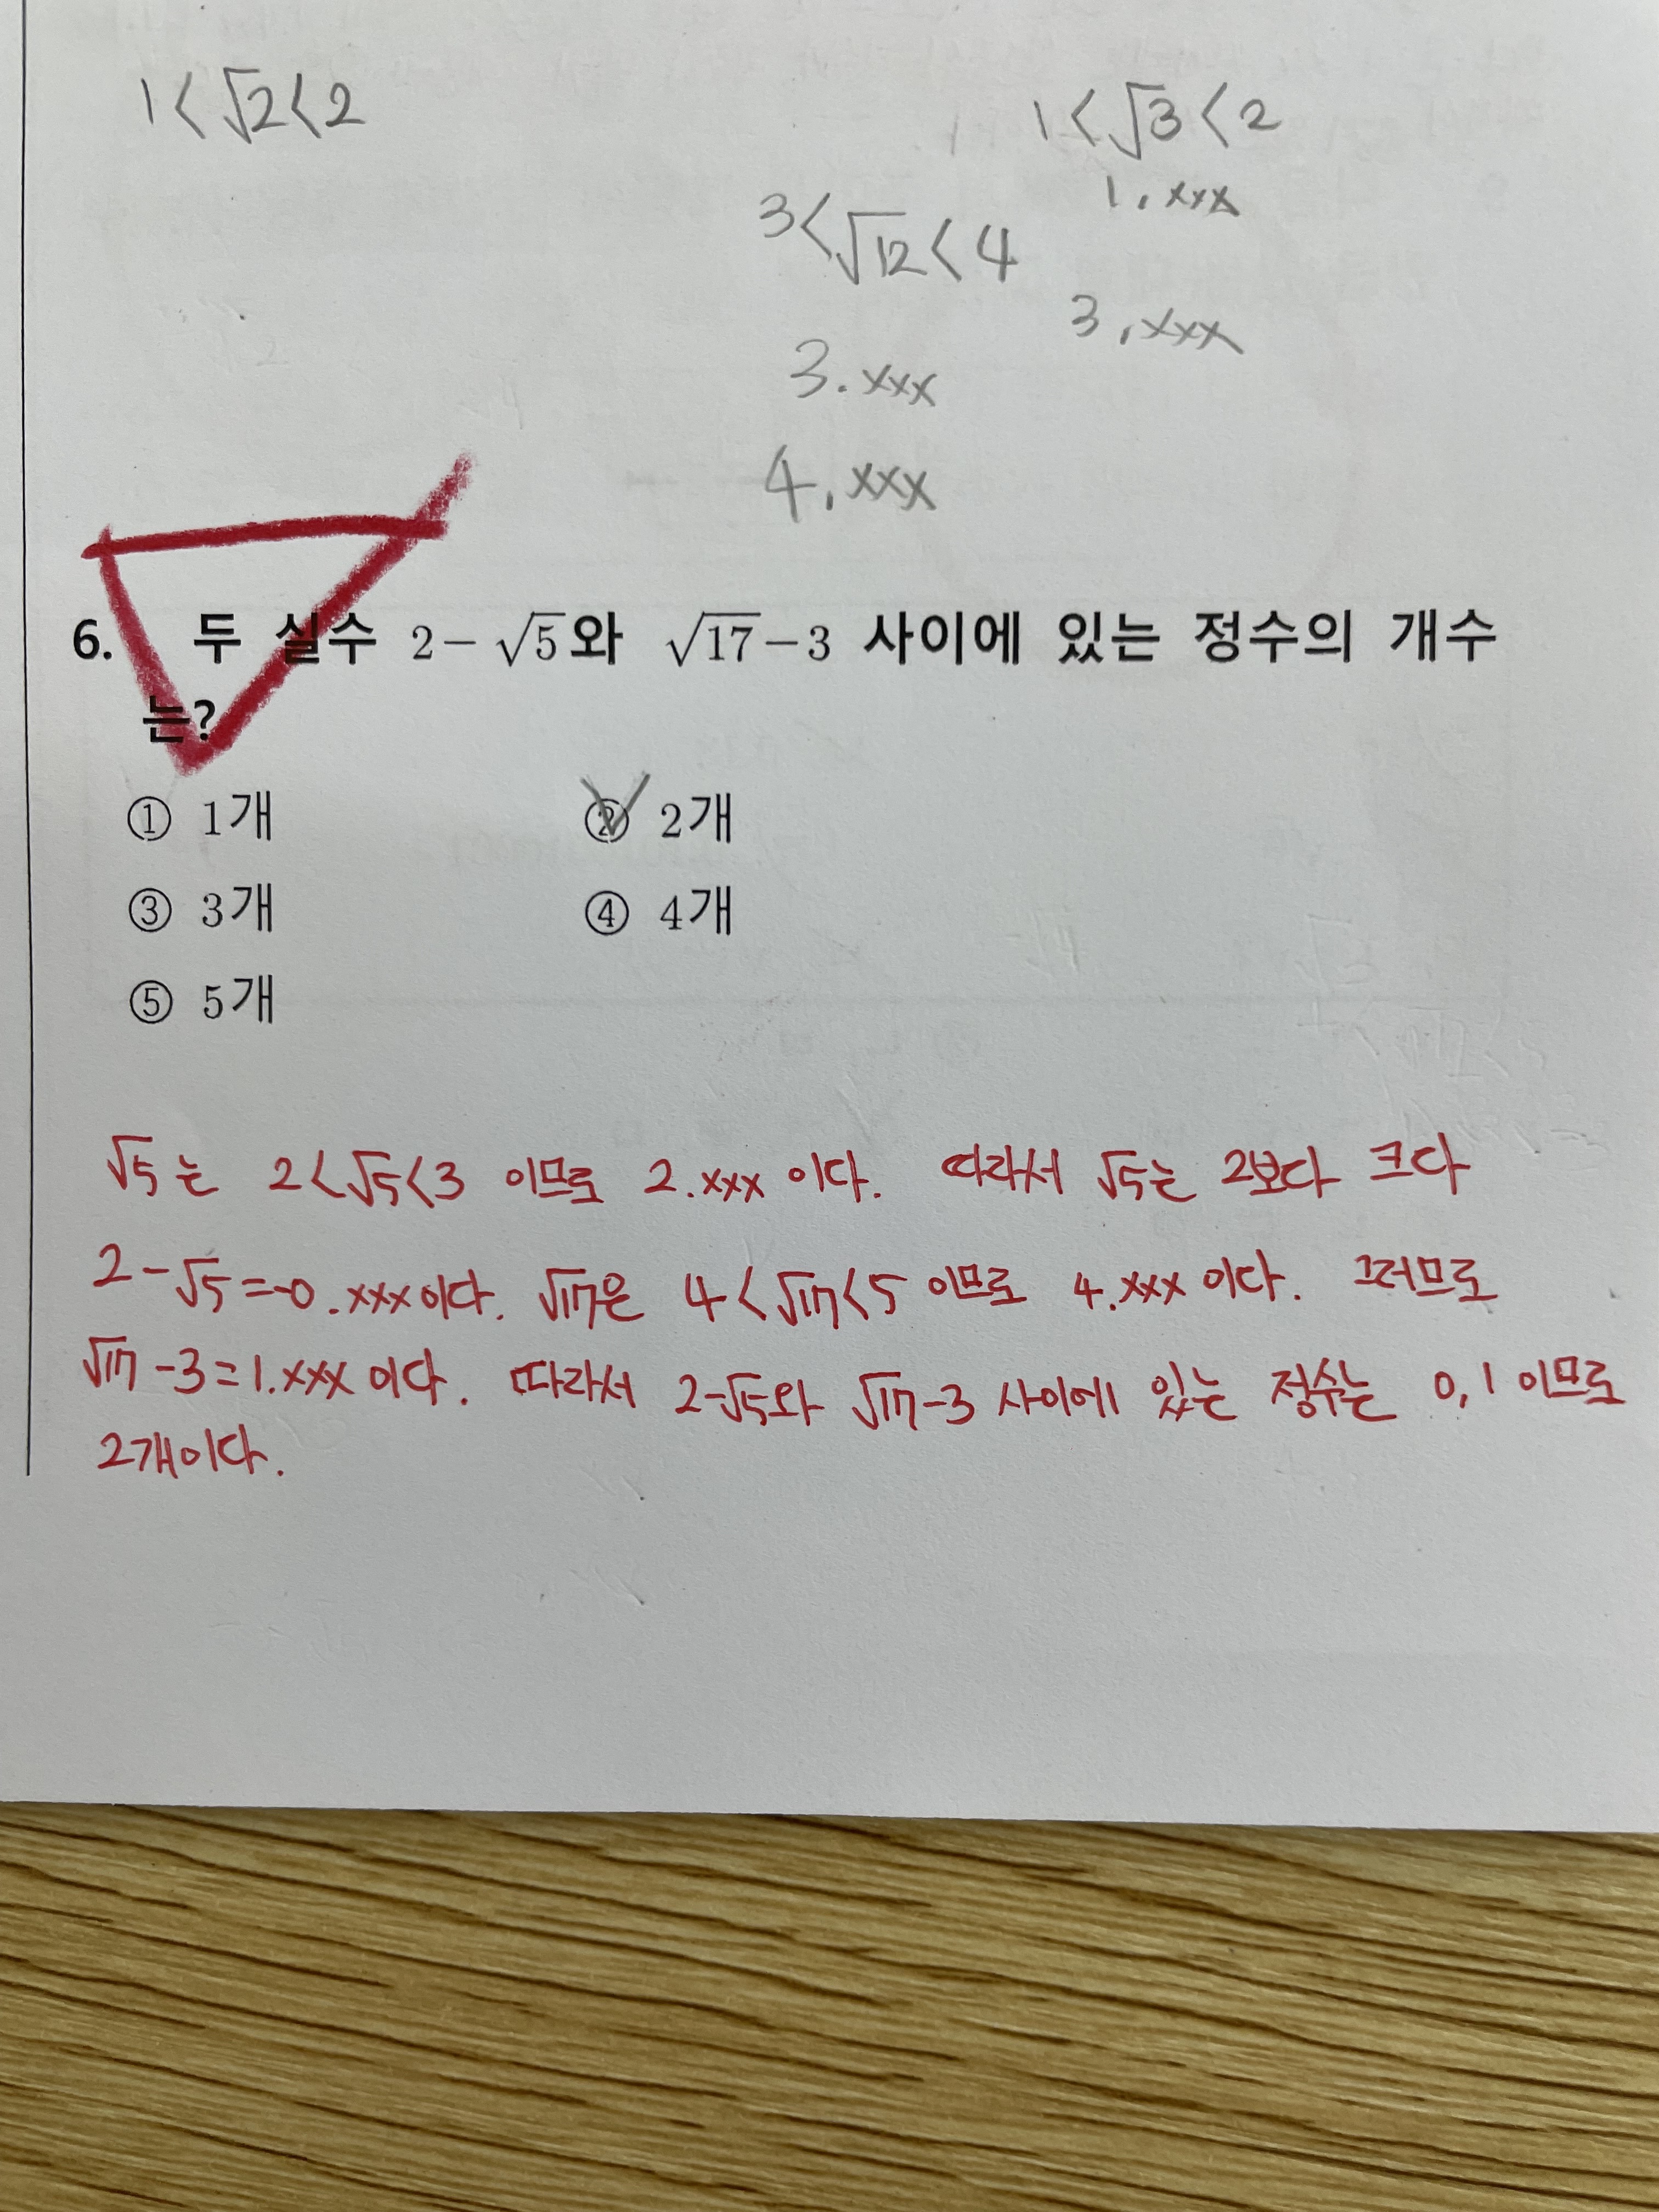 1<√2<2
1<√3<2
1.xxx
3<√12<4
3.xxx
3.xxx
4.xxx
6. 두 실수 2-√5와 √17-3 사이에 있는 정수의 개수
는?
① 1개 ② 2개
③ 3개 ④ 4개
⑤ 5개
√5는 2<√5<3 이므로 2.xxx 이다. 따라서 √5는 2보다 크다
2-√5=-0.xxx이다. √17은 4<√17<5 이므로 4.xxx 이다. 그러므로
√17-3=1.xxx 이다. 따라서 2-√5와 √17-3 사이에 있는 정수는 0,1 이므로
2개이다.